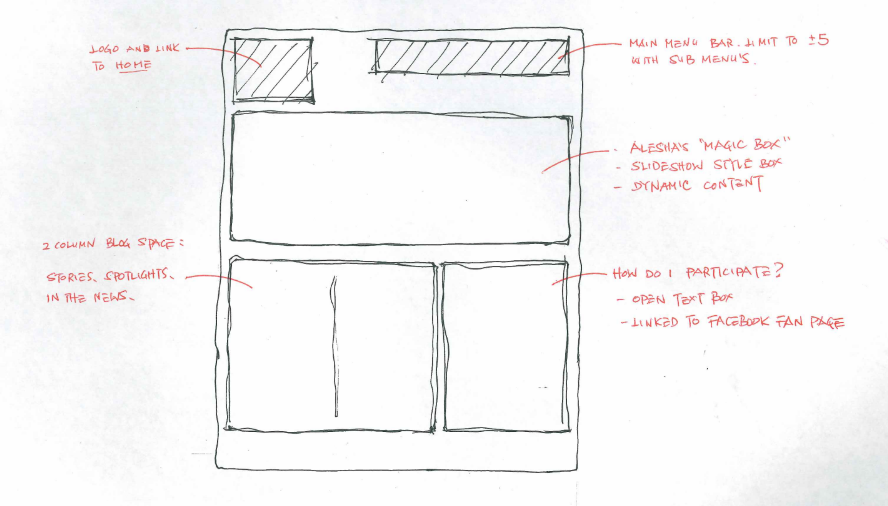 LOGO AND LINK
TO HOME
MAIN MENU BAR. LIMIT TO ±5
WITH SUB MENU'S.
- ALESHA'S "MAGIC BOX"
- SLIDESHOW STYLE BOX
- DYNAMIC CONTENT
2 COLUMN BLOG SPACE:
STORIES, SPOTLIGHTS,
IN THE NEWS.
HOW DO I PARTICIPATE?
- OPEN TEXT BOX
- LINKED TO FACEBOOK FAN PAGE